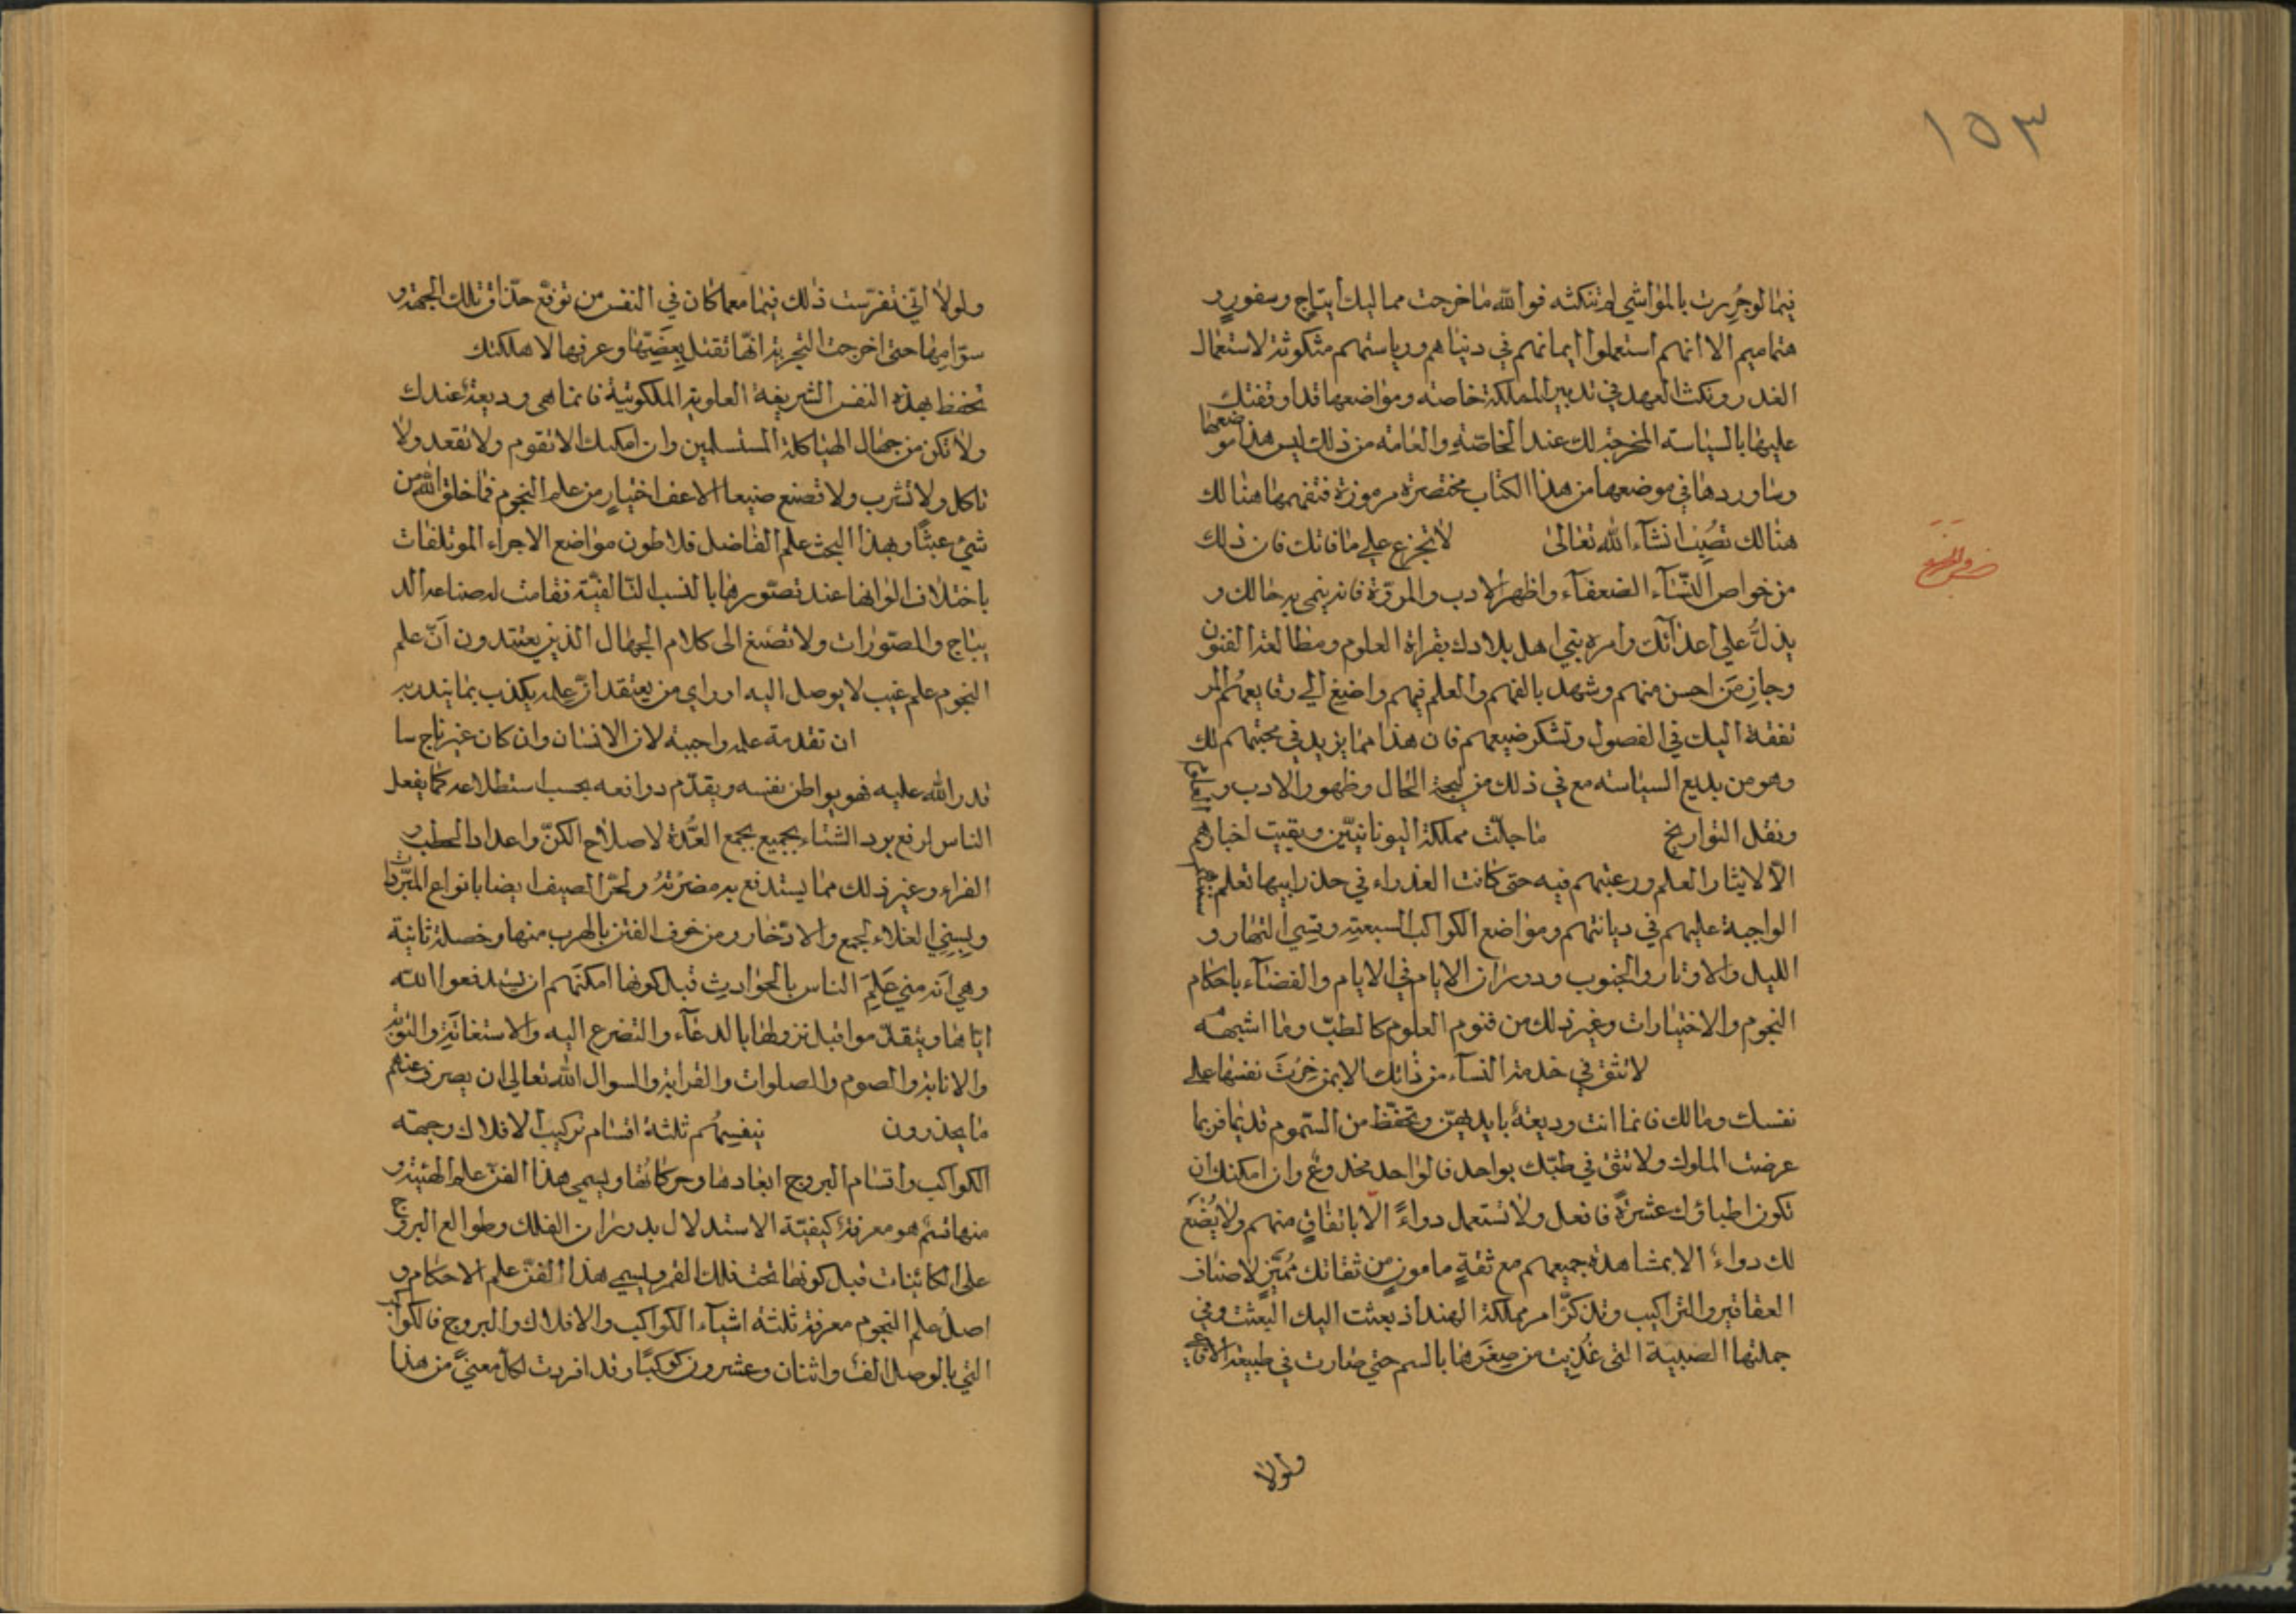 ١٥٣
فيما لو جُررت بالمواشي لم تنكثه فوالله ما خرجت مماليك ايتاج وسفور و
هتاميم الا انهم استعملوا ايمانهم في دنياهم ورياستهم مثكوثة لاستعمال
الغدر ونكث العهد في تدبير المملكة خاصته ومواضعها قد اوقفتك
عليها بالسياسه المخرجة لك عند الخاصّة والعامه من ذلك ليس هذا موضعها
وساوردها في موضعها من هذا الكتاب مختصرة مرموزة فتفهمها هنالك
هنالك تصب ان شآء الله تعالى لا تجزع على ما فاتك فان ذلك
من خواص النسآء الضعفآء واظهر الادب والمروّة فانه ينمي به حالك و
يذلّ على اعدائك وامره بني اهل بلادك بقراة العلوم ومطالعة الفنون
وجاز من احسن منهم وشهد بالفهم والعلم فيهم واضيغ الي رقايعهم المر
تفقة اليك في الفصول وتشكر ضيعهم فان هذا مما يزيد في محبتهم لك
وهو من بديع السياسه مع في ذلك من بهجة الحال وظهور الادب و العلوم
ونقل التواريخ ما جلّت مملكة اليونانيّين وبقيت اخبارهم
الّا لايثار العلم ورغبتهم فيه حتى كانت العذراء في حذر ابيها تعلم
الواجبة عليهم في ديانتهم ومواضع الكواكب السبعة وقسي النهار و
الليل والاوتار والجنوب ودوران الايام في الايام والقضآء باحكام
النجوم والاختيارات وغير ذلك من فنوم العلوم كالطبّ وما اشبهه
لا تثق في خدمة النسآء من ذاتك الا بمن خبرت نفسها على
نفسك ومالك فانما انت وديعة بايديهن وتحفّظ من السّموم قديما فربما
عرضت الملوك ولا تثق في طبّك بواحد فالواحد مخدوع وان امكنك ان
تكون اطباؤك عشرة فافعل ولا تستعمل دواءً الا باتفاق منهم ولا يُصنع
لك دواء الا بمشاهدة جميعهم مع ثقةٍ مامونٍ من ثقاتك مُميّز لاصناف
العقاقير والتراكيب وتذكّر امر مملكة الهند اذ بعثت اليك البعثت وفي
جملتها الصبية التي غُذيت من صغرها بالسم حتي صارت في طبيعة الافاعي
ولولا
ولولا انّي تفرّست ذلك فيها معما كان في النفس من توقع حذاق تلك الجهة و
سوّامها حتى اخرجت التجربة انّها تقتل بعضتها وعرفها لاهلكتك
تحفظ بهذه النفس الشريفة العلوية الملكوتية فانما هي وديعة عندك
ولا تكن من جهّال الهياكلة المستسلمين وان امكنك الا تقوم ولا تقعد ولا
تاكل ولا تشرب ولا تصنع صنيعا الا عن اختيار من علم النجوم فما خلق الله من
شيء عبثًا وبهذا البحث علم الفاضل فلاطون مواضع الاجراء الموتلفات
باختلاف الوانها عند تصّورها بالنسب التالفيّة فقامت له صناعه الد
يباج والمصّورات ولا تصنع الى كلام الجهال الذين يعتقدون أنّ علم
النجوم علم غيب لا يوصل اليه او راي من يعتقد انّ علمه يكذب بما ينذر به
ان تقدمة علمه واجبة لان الانسان وان كان غير ناج مما
قدر الله عليه فهو يواطن نفسه ويقدّم دوافعه بحسب استطلاعه كما يفعل
الناس لرفع برد الشتاء بجميع بجمع العُدّة لاصلاح الكنّ واعداد الحطب و
الفراء وغير ذلك مما يستدفع به مضرته ولحرّ الصيف ايضا بانواع المبّردات
وبسني الغلاء لجمع والادّخار ومن خوف الفتن بالهرب منها وخصلة ثانية
وهي انه متي علم الناس بالحوادث قبل كونها امكنهم ان يستدفعوا الله
اياها ويتقدّموا قبل نزولها بالدعآء والتضرع اليه والاستغاثة والتوبة
والانابة والصوم والصلوات والقرابة والسوال الله تعالى ان يصرف عنهم
ما يحذرون ينقسم ثلثة اقسام تركيب الافلاك وجهة
الكواكب واقسام البروج ابعادها وحركاتها ويسمى هذا الفن علم الهيئة و
منها قسم هو معرفة كيفيّة الاستدلال بدوران الفلك وطوالع البروج
على الكائنات قبل كونها تحت فلك القمر ويسمي هذا الفن علم الاحكام و
اصل علم النجوم معرفة ثلثة اشيآء الكواكب والافلاك والبروج فالكواكب
التي بالوصل الف واثنان وعشرون كوكبًا وقد افردت لكل معنى من هذا